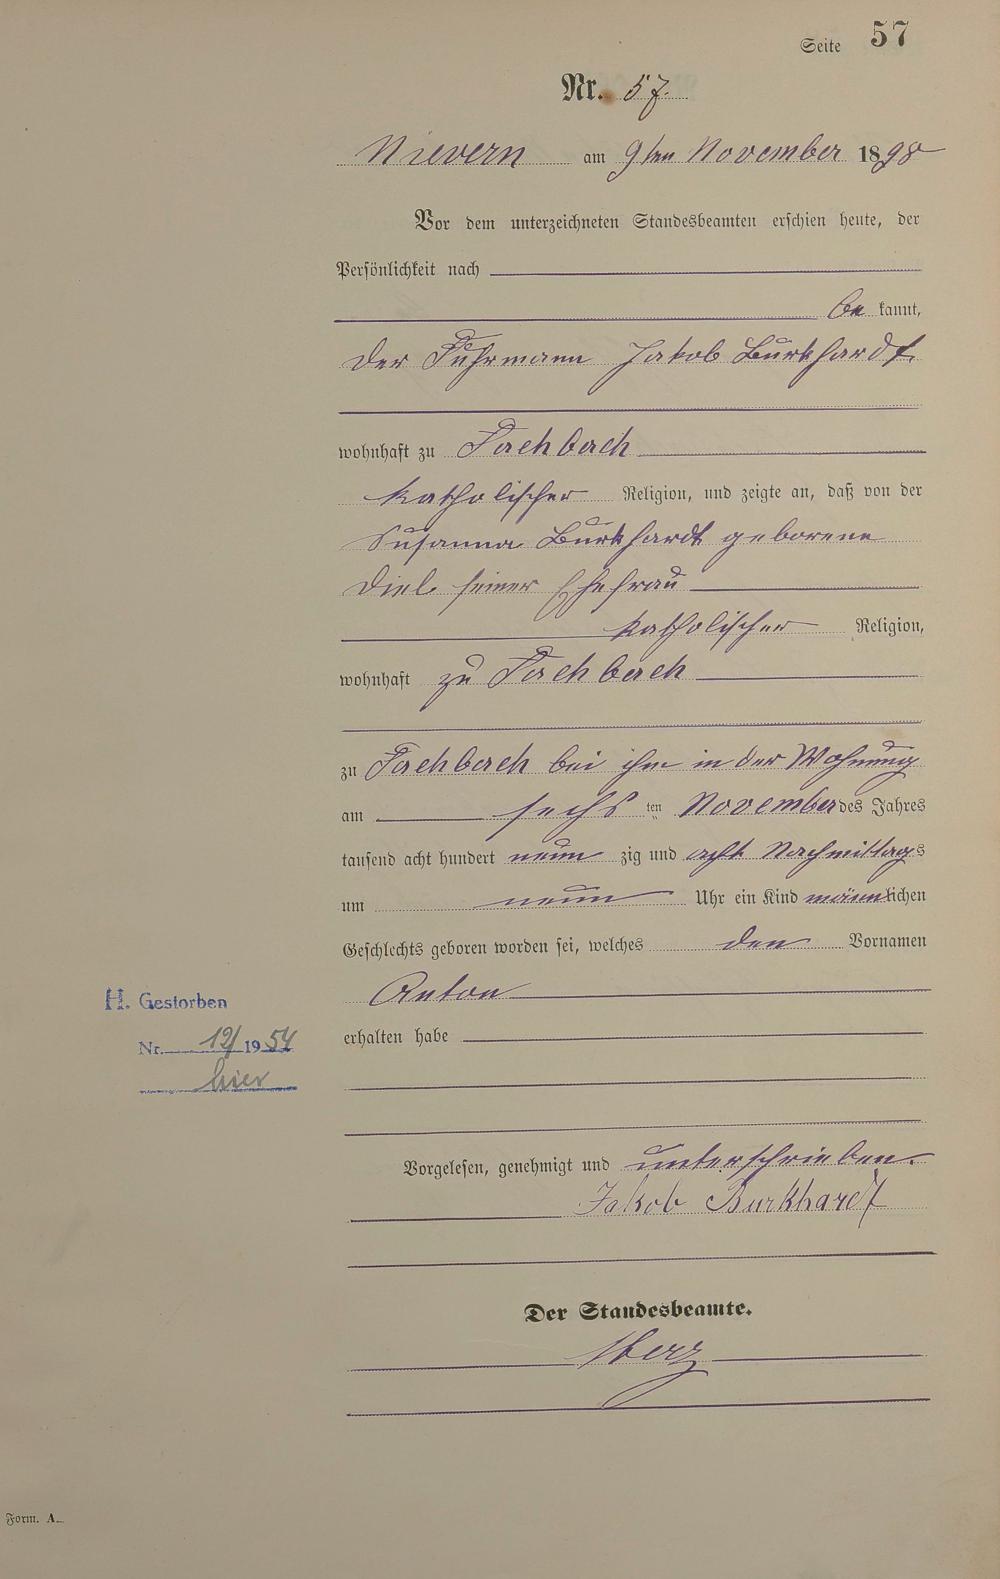 Seite 57
Nr. 57.
Nievern am 9ten November 1898
Vor dem unterzeichneten Standesbeamten erschien heute, der
Persönlichkeit nach
be kannt,
der Fuhrmann Jakob Burkhardt
wohnhaft zu Fachbach
katholischer Religion, und zeigte an, daß von der
Susanna Burkhardt geborene
Diel seiner Ehefrau
katholischer Religion,
wohnhaft zu Fachbach
zu Fachbach bei ihm in der Wohnung
am sechsten November des Jahres
tausend acht hundert neun zig und acht Nachmittags
um neun Uhr ein Kind männlichen
Geschlechts geboren worden sei, welches den Vornamen
Anton
H. Gestorben
erhalten habe
Nr. 12/1954
hier
Vorgelesen, genehmigt und unterschrieben.
Jakob Burkhardt
Der Standesbeamte.
Form. A.